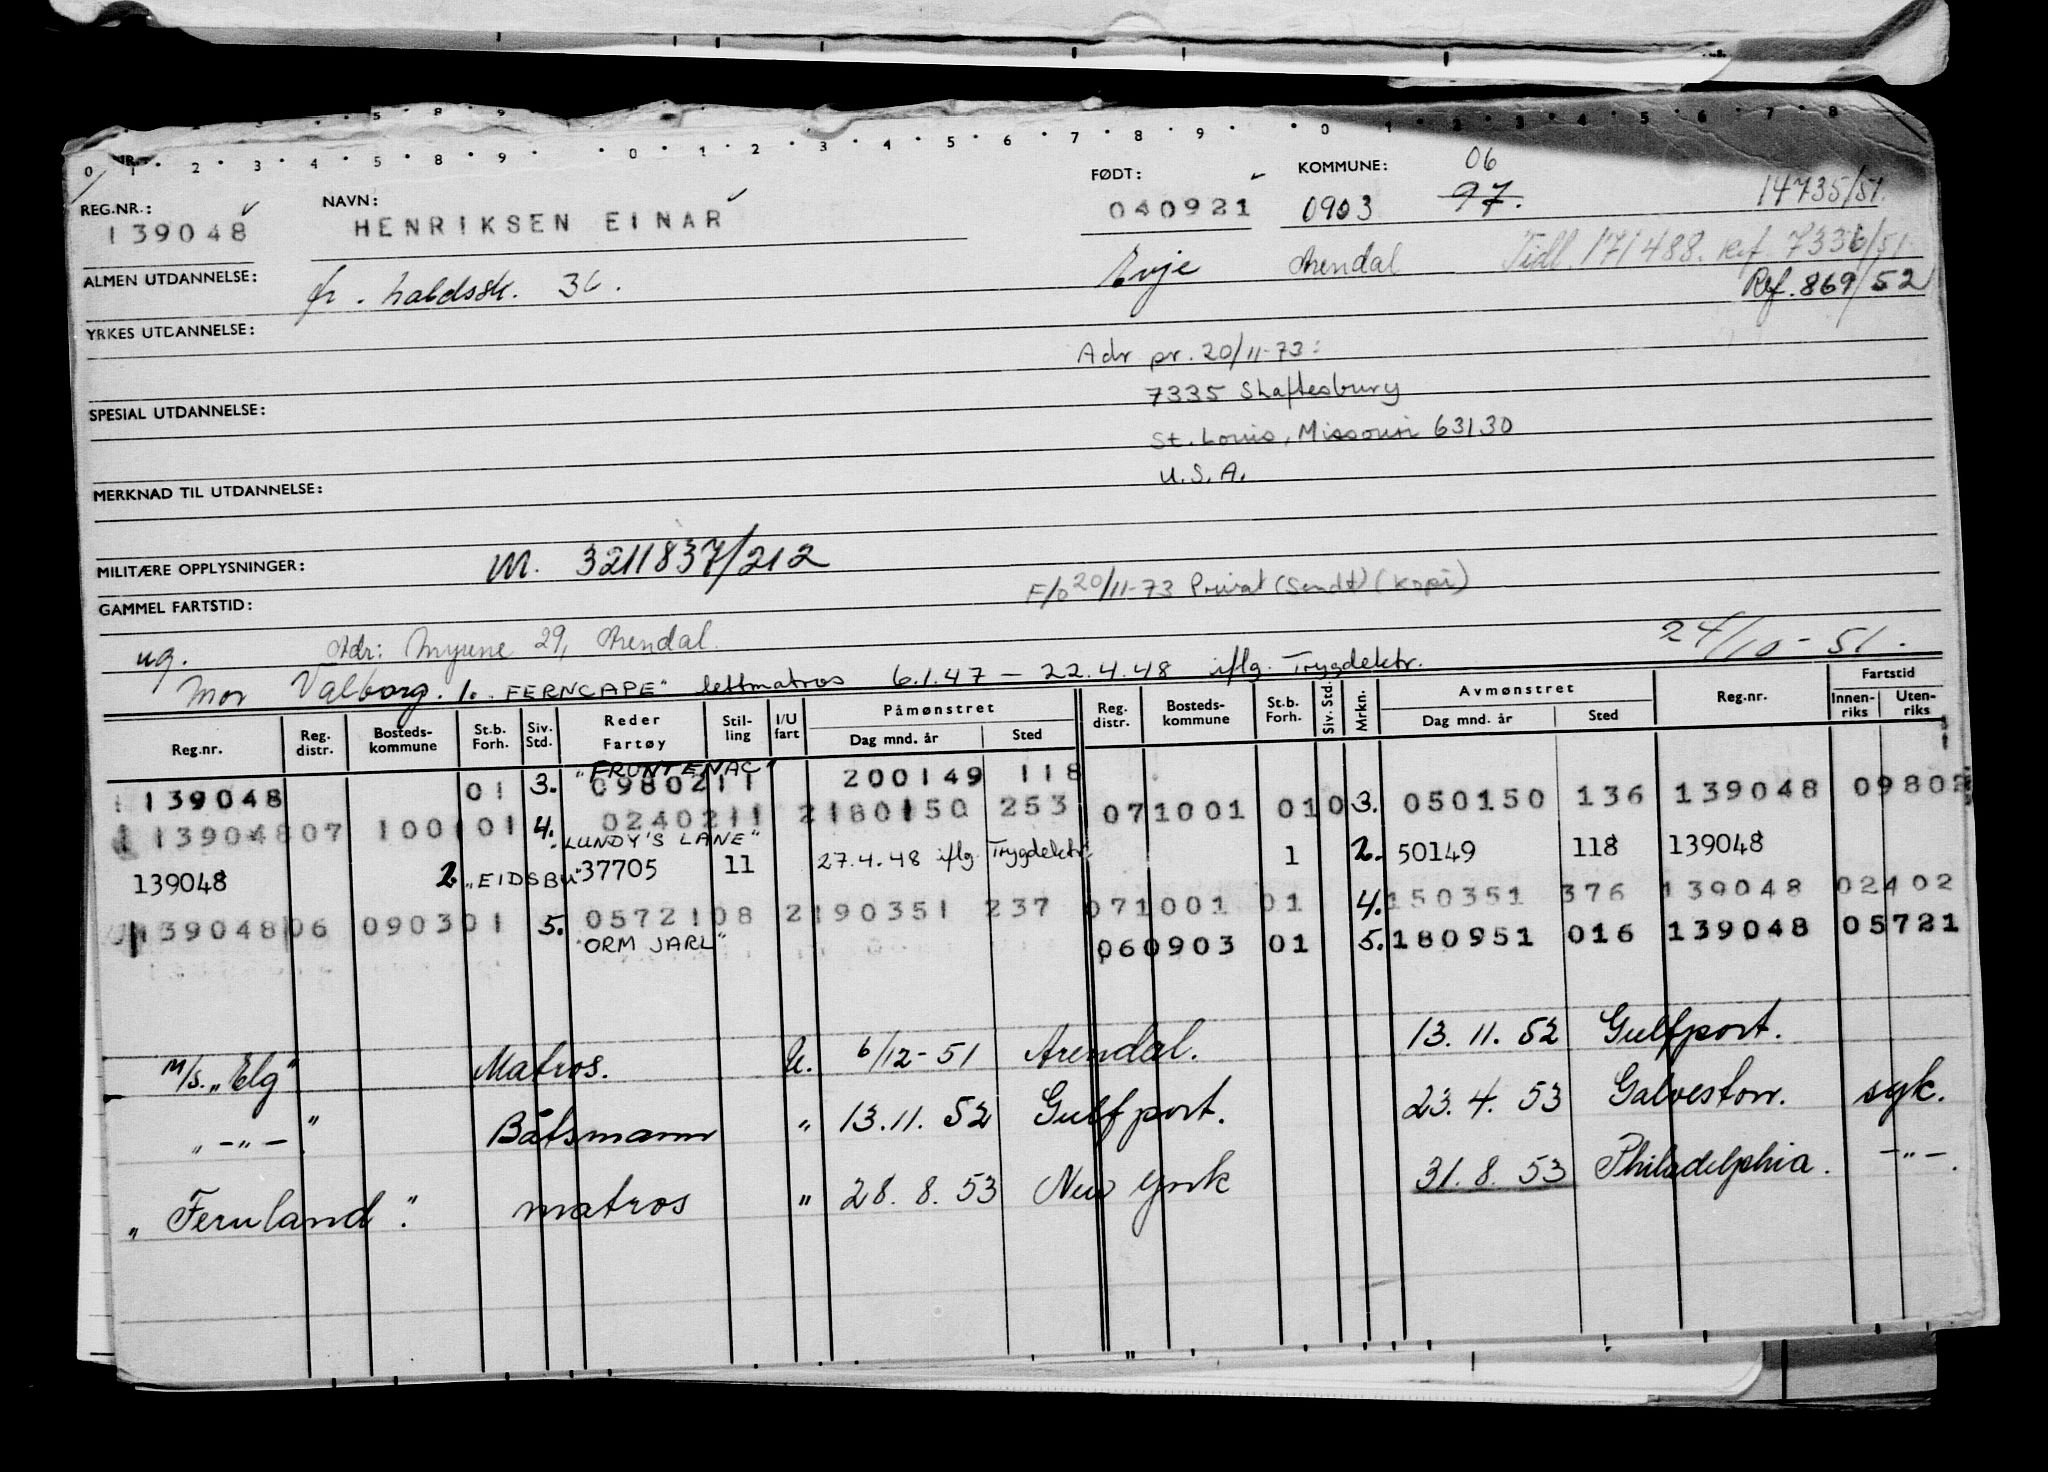 REG.NR.: 139048
NAVN: HENRIKSEN EINAR
FØDT: 040921
KOMMUNE: 0903 97. 06
14735/51.
Evje Arendal Tidl. 171488. Ref. 7336/51
Ref. 869/52
ALMEN UTDANNELSE: fr.
YRKES UTDANNELSE:
Adr pr. 20/11-73:
7335 Shaftesbury
SPESIAL UTDANNELSE:
St. Louis, Missouri 63130
U.S.A.
MERKNAD TIL UTDANNELSE:
MILITÆRE OPPLYSNINGER: M. 3211837/212
F/o 20/11-73 Privat (Sendt) (Kopi)
GAMMEL FARTSTID:
ug. Adr: Myrene 29, Arendal. 24/10-51.
Mor Valborg. 1. "FERNCAPE" lettmatros 6.1.47 – 22.4.48 iflg. Trygdektr.
Reg.nr. Reg. distr. Bosteds-kommune St.b. Forh. Siv. Std. Reder Fartøy Stil-ling I/U fart Påmønstret Dag mnd. år Sted Reg. distr. Bosteds-kommune St.b. Forh. Siv. Std. Mrkn. Avmønstret Dag mnd. år Sted Reg.nr. Fartstid Innen-riks Uten-riks
"FRONTENAC"
139048 01 3. 0980211 200149 118
071001 010 3. 050150 136 139048 09802
13904807 100101 4. 0240211 2180150 253
"LUNDY'S LANE"
139048 2. "EIDSBU" 37705 11 27.4.48 iflg. Trygdektr. 1 2. 50149 118 139048
071001 01 4. 150351 376 139048 02402
13904806 090301 5. 0572108 2190351 237
"ORM JARL"
060903 01 5. 180951 016 139048 05721
M/s. "Elg" Matros. U. 6/12-51 Arendal. 13.11.52 Gulfport.
" -"- " Båtsmann " 13.11.52 Gulfport. 23.4.53 Galveston. syk.
"Fernland". matros " 28.8.53 New York 31.8.53 Philadelphia. -"-.